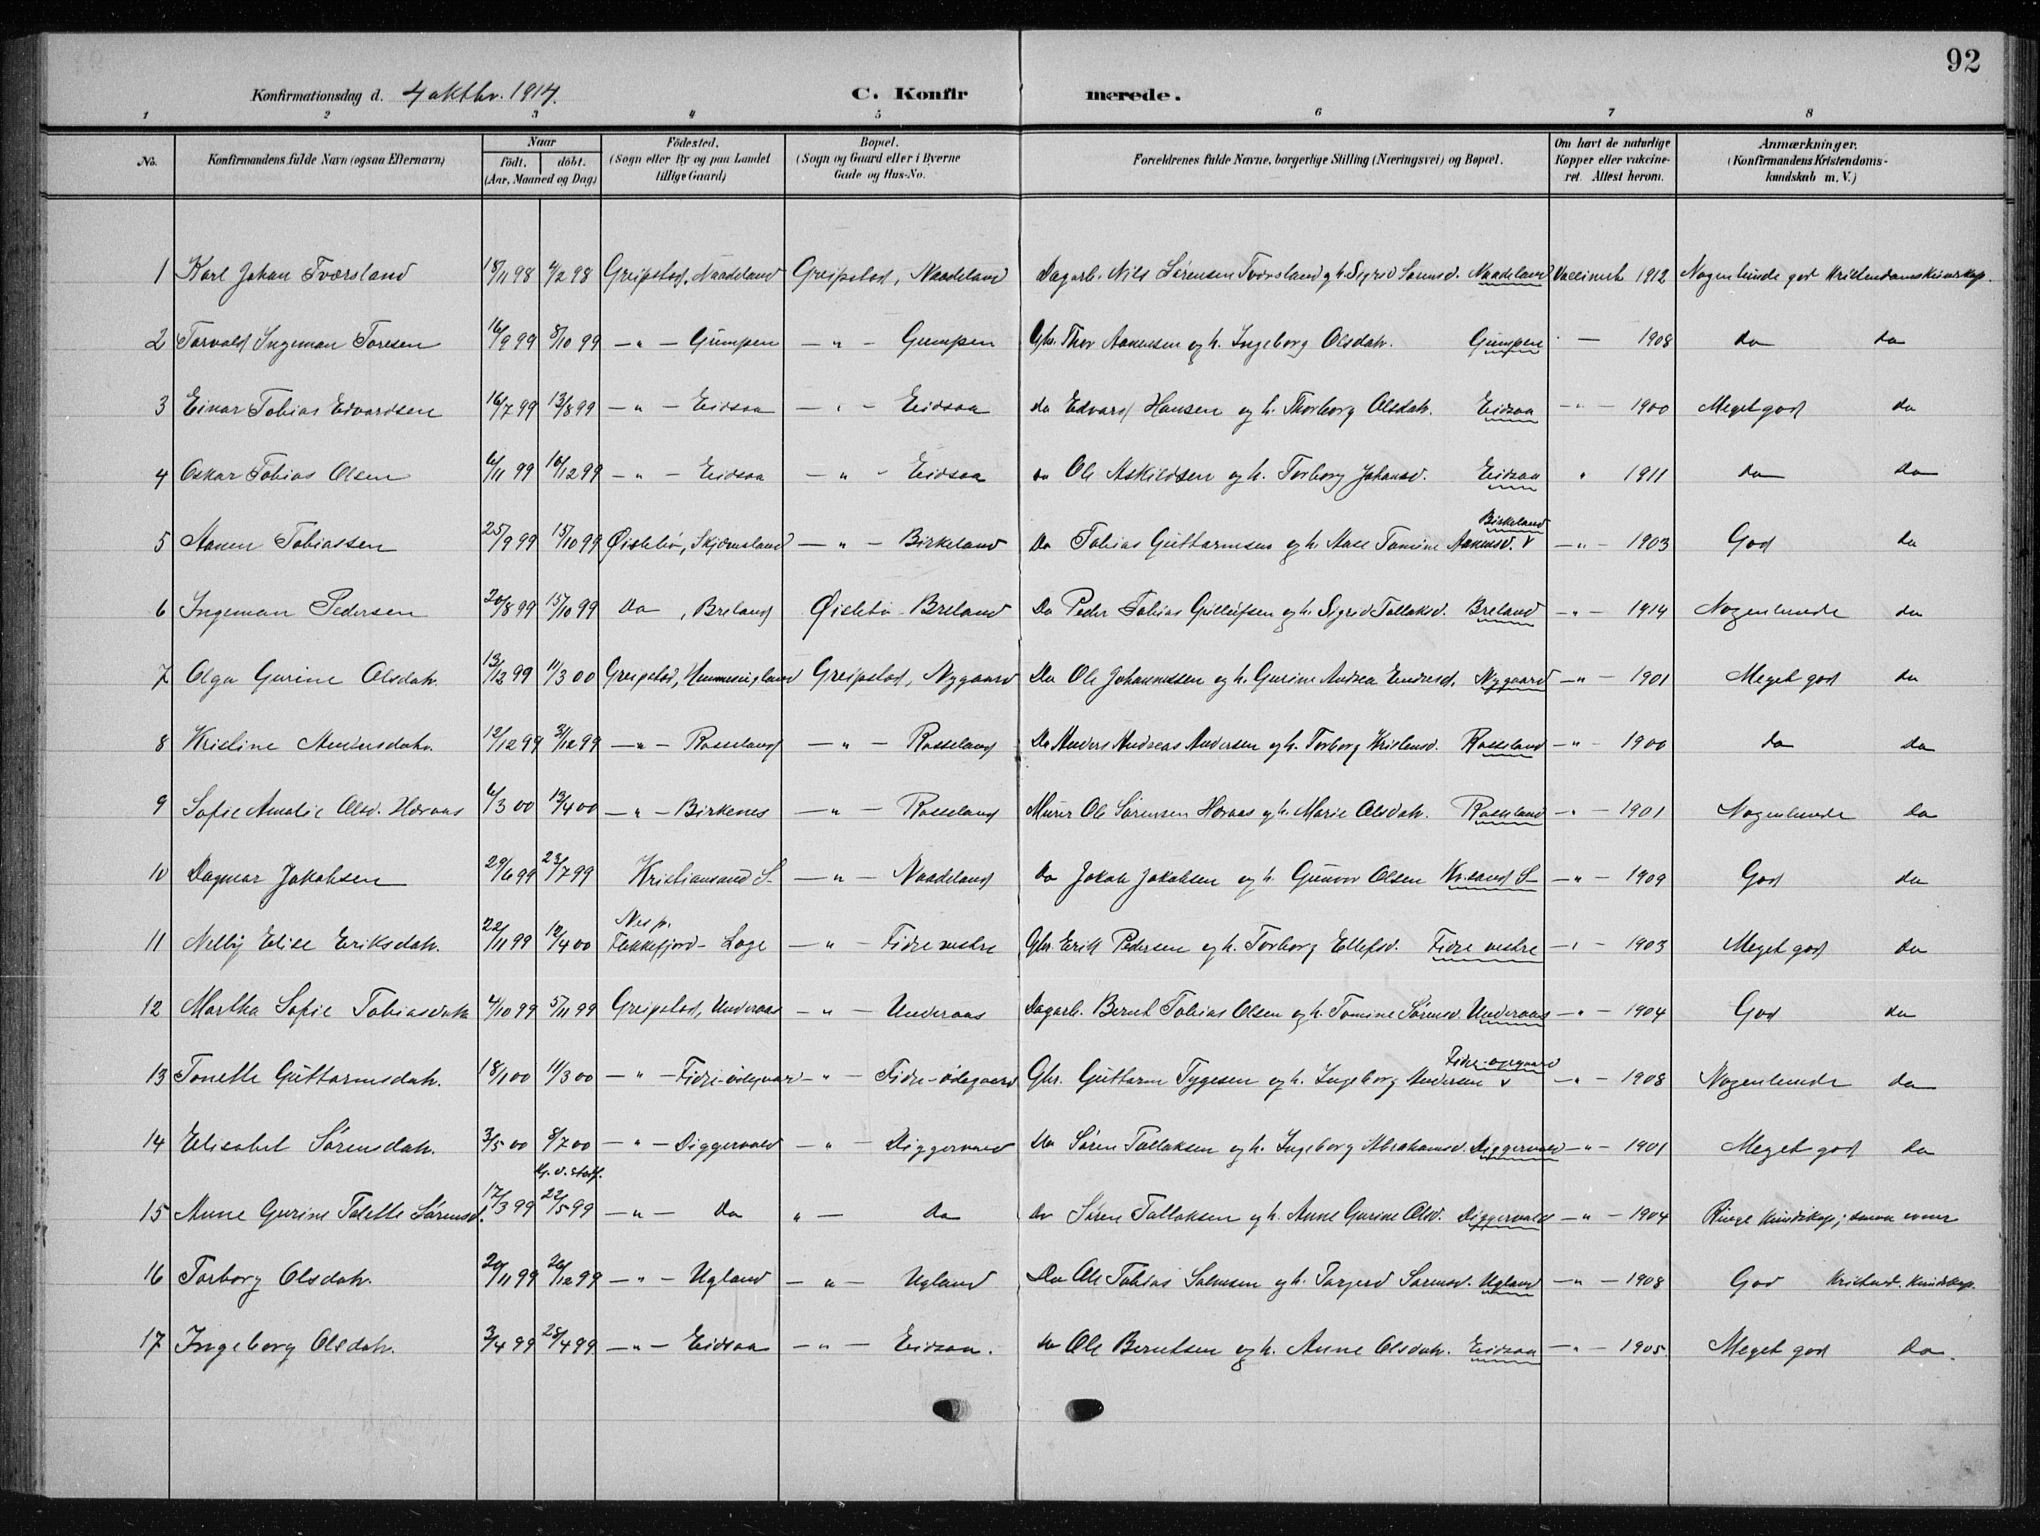 92
Konfirmationsdag d. 4 oktbr. 1914.
C. Konfirmerede.
1 2 3 4 5 6 7 8
No. Konfirmandens fulde Navn (ogsaa Efternavn) Naar födt. döbt. (Aar, Maaned og Dag) Födested. (Sogn eller By og paa Landet tillige Gaard) Bopæl. (Sogn og Gaard eller i Byerne Gade og Hus-No. Forældrenes fulde Navne, borgerlige Stilling (Næringsvei) og Bopæl. Om havt de naturlige Kopper eller vakcineret. Attest herom. Anmærkninger. (Konfirmandens Kristendomskundskab m. V.)
1 Karl Johan Tværsland 18/11 98 4/2 98 Greipstad, Naadeland Greipstad, Naadeland Dagarb. Nils Sørensen Tværsland og h. Sigrid Sørensd. Naadeland Vaccineret 1912 Nogenlunde god Kristendomskundskap.
2 Torvald Ingeman Toresen 16/9 99 8/10 99 — " — Gumpen — " — Gumpen Gbr. Thor Aanensen og h. Ingeborg Olsdatr. Gumpen — 1908 do do
3 Einar Tobias Edvardsen 16/7 99 13/8 99 — " — Eidsaa — " — Eidsaa do Edvard Hansen og h. Thorborg Olsdatr. Eidsaa — " — 1900 Meget god do
4 Oskar Tobias Olsen 6/11 99 10/12 99 — " — Eidsaa — " — Eidsaa do Ole Askildsen og h. Torborg Johansd. Eidsaa " 1911 do do
5 Aanen Tobiassen 25/9 99 15/10 99 Øislebø, Skjævesland — " — Birkeland Do Tobias Guttormsen og h. Aase Tomine Aanensd. v Birkeland — " — 1903 God do
6 Ingeman Pedersen 20/8 99 15/10 99 Do, Breland Øislebø Breland Do Peder Tobias Gullufsen og h. Sigrid Tollaksd. Breland — " — 1914 Nogenlunde do
7 Olga Gurine Olsdatr. 13/12 99 11/3 00 Greipstad, Hemmesigland Greipstad, Nygaard Do Ole Johannessen og h. Gurine Andrea Endresd. Nygaard — " — 1901 Meget god do
8 Kristine Andersdatr. 12/12 99 31/12 99 — " — Rosseland — " — Rosseland Do Anders Andreas Andersen og h. Torborg Kristensd. Rosseland — " — 1900 do do
9 Sofie Amalie Olsd. Horaas 6/3 00 13/4 00 — " — Birkenes — " — Rosseland Murer Ole Sørensen Horaas og h. Marie Olsdatr. Rosseland — " — 1901 Nogenlunde do
10 Dagmar Jakobsen 29/6 99 23/7 99 Kristiansand S. — " — Naadeland do Jakob Jakobsen og h. Gunvor Olsen Kr.sand S — " — 1909 God do
11 Nelly Elise Eriksdatr. 22/11 99 12/4 00 Nes pr. Flekkefjord - Loge — " — Fidje vestre Gbr. Erik Pedersen og h. Torborg Ellefsd. Fidje vestre — " — 1903 Meget god do
12 Martha Sofie Tobiasdatr 4/10 99 5/11 99 Greipstad, Underaas — " — Underaas Dagarb. Bernt Tobias Olsen og h. Tomine Sørensd. Underaas — " — 1904 God do
13 Tonette Guttormsdatr. 18/1 00 11/3 00 — " — Fidje-ødegaard — " — Fidje-ødegaard Gbr. Guttorm Tygesen og h. Ingeborg Andersen v Fidje-ødegaard — " — 1908 Nogenlunde do
14 Elisabet Sørensdatr. 3/5 00 8/7 00 — " — Diggervald — " — Diggervald Do Søren Tollaksen og h. Ingeborg Abrahamsd. Diggervald — " — 1901 Meget god do
15 Anne Gurine Tolette Sørensd. 17/3 99 Hj. d. stadf. 22/5 99 — " — Do " — Do do Søren Tollaksen og h. Anne Gurine Olsd. Diggervald — " — 1904 Ringe kundskap; smaa evner
16 Torborg Olsdatr. 20/11 99 26/12 99 — " — Ugland — " — Ugland Do Ole Tobias Salvesen og h. Torjerd Sørensd. Ugland — " — 1908 God Kristend. kundskap.
17 Ingeborg Olsdatr. 3/4 99 28/4 99 — " — Eidsaa — " — Eidsaa. do Ole Berntsen og h. Anne Olsdatr. Eidsaa — " — 1905. Meget god Do.